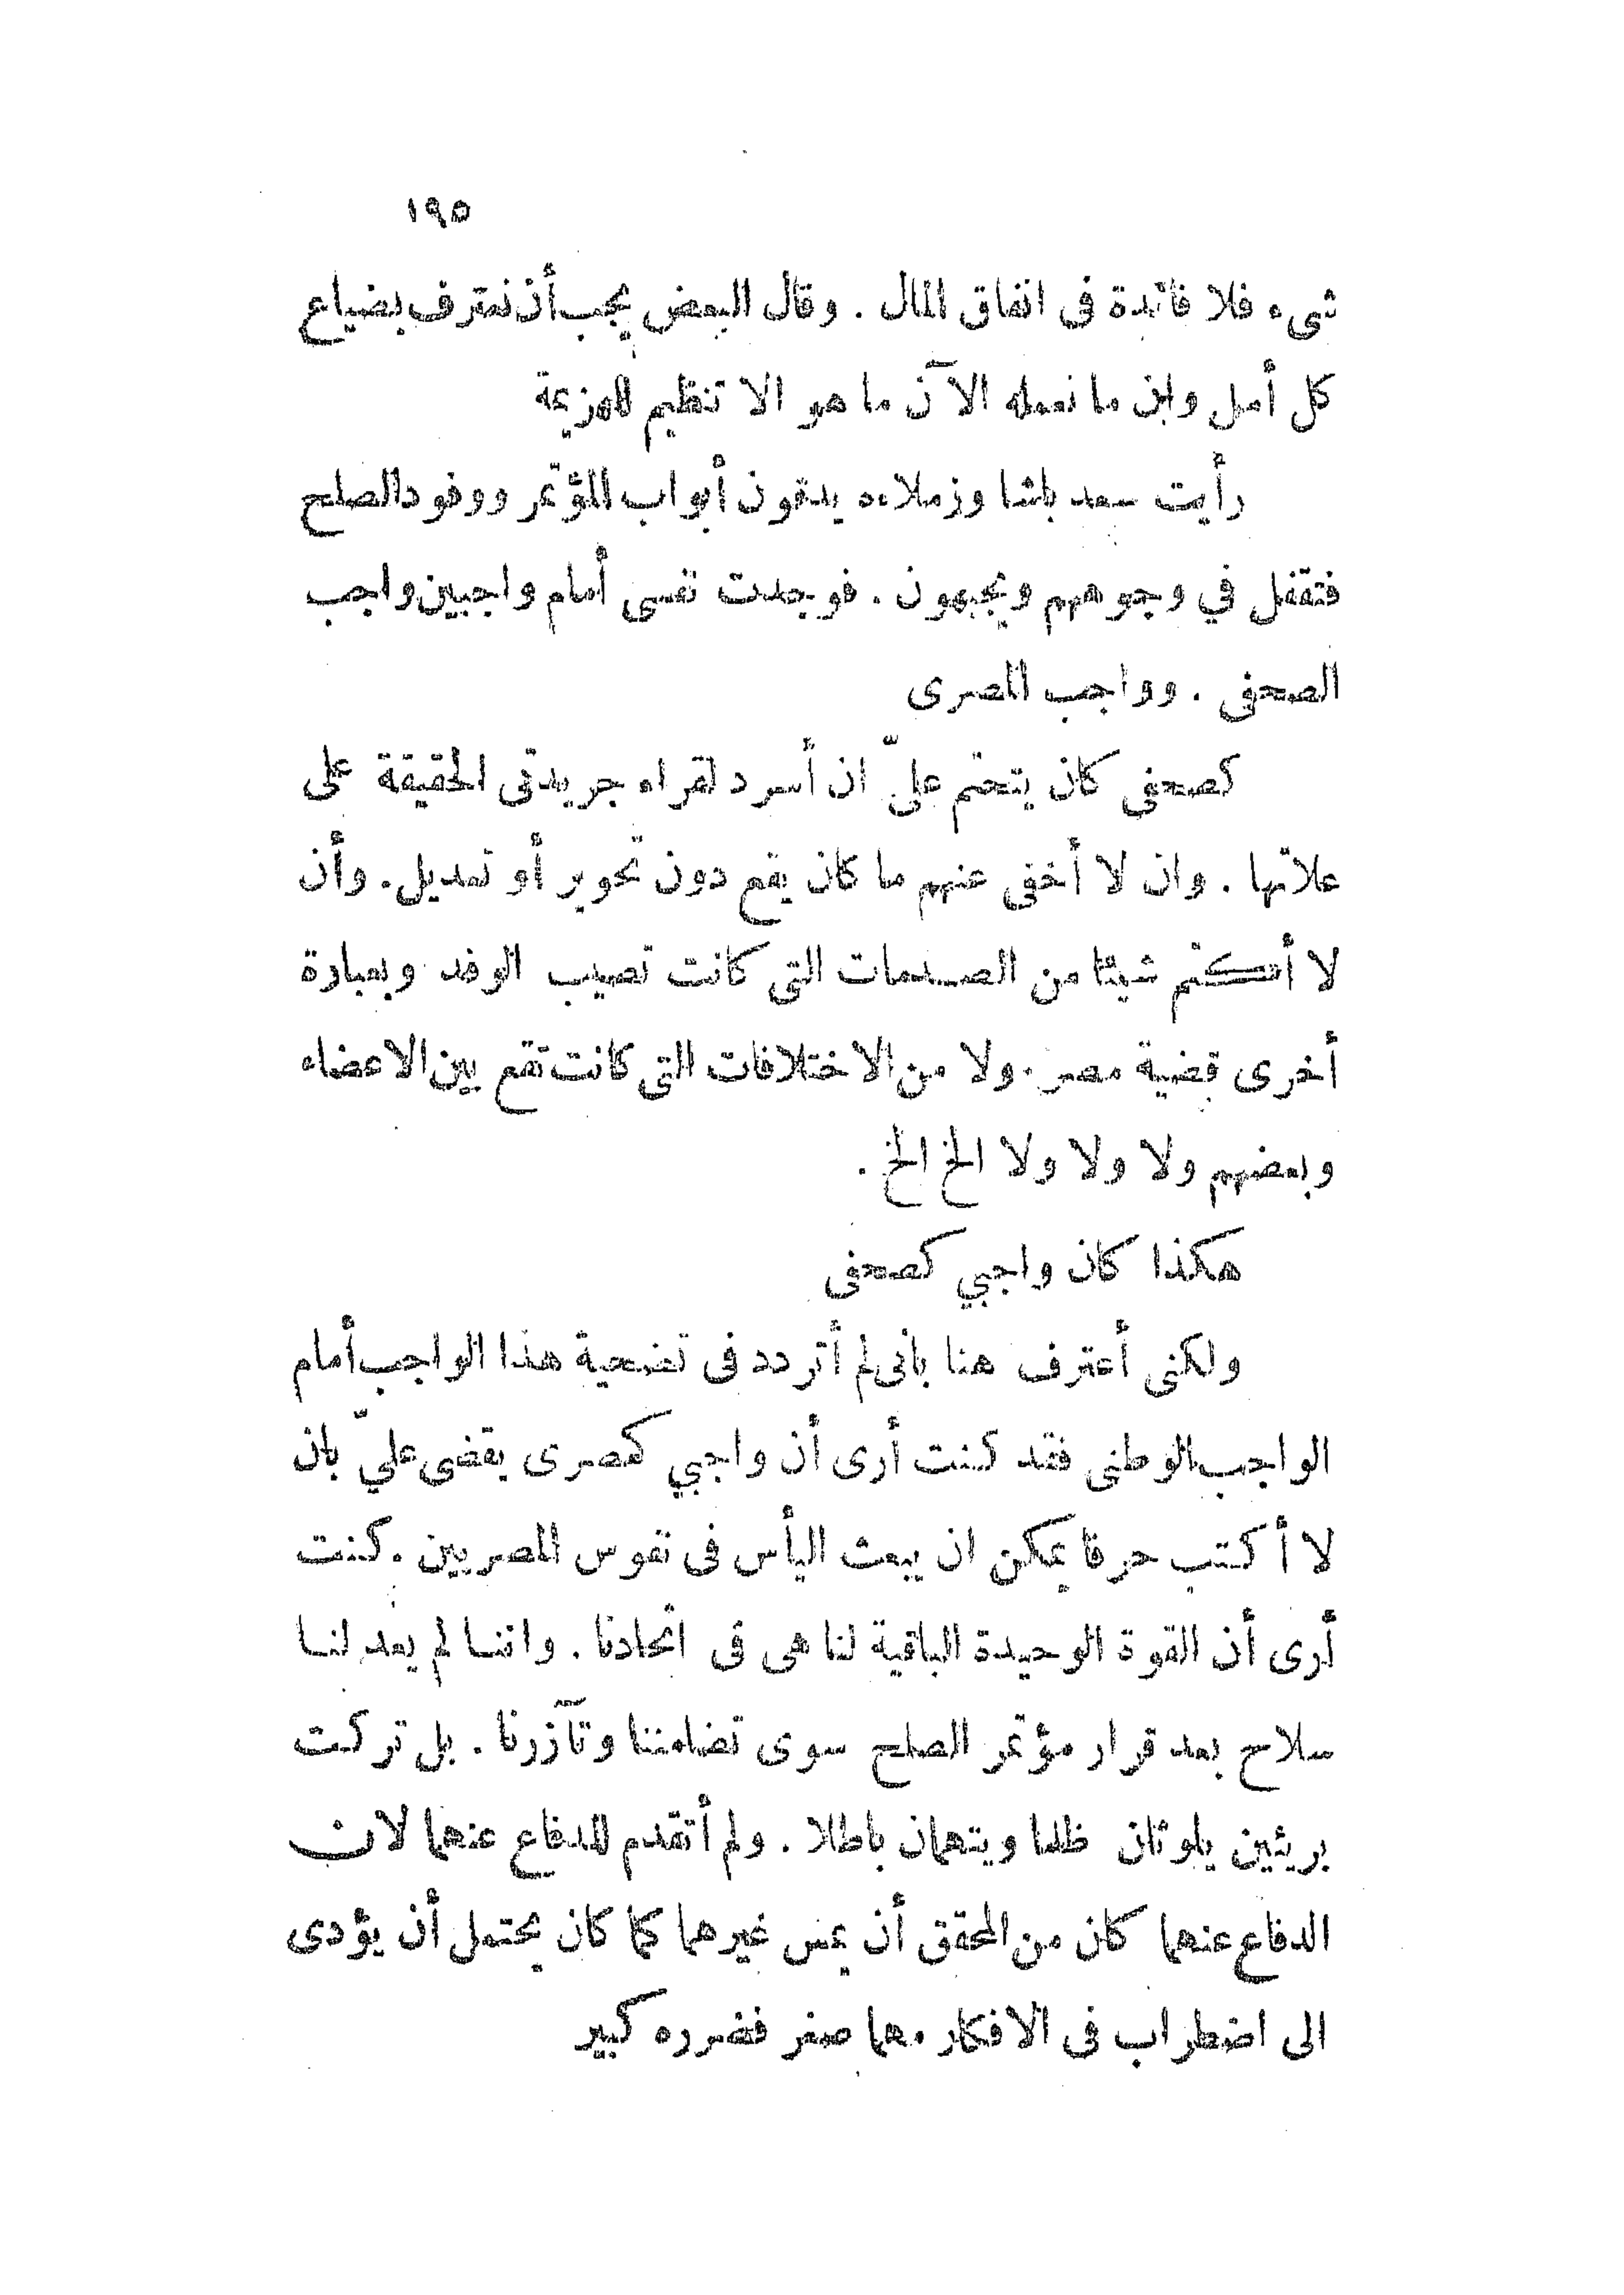 ١٩٥
شىء فلا فائدة فى انفاق المال . وقال البعض يجب أن نعترف بضياع
كل أمل وان ما نعمله الآن ما هو الا تنظيم للهزيمة
رأيت سعد باشا وزملاءه يدقون أبواب المؤتمر ووفود الصلح
فتقفل في وجوههم ويجبهون . فوجدت نفسى أمام واجبين واجب
الصحفى . وواجب المصرى
كصحفى كان يتحتم علىّ ان أسرد لقراء جريدتى الحقيقة على
علاتها . وان لا أخفى عنهم ما كان يقع دون تحوير أو تعديل . وأن
لا أكتم شيئا من الصدمات التى كانت تصيب الوفد وبعبارة
أخرى قضية مصر . ولا من الاختلافات التى كانت تقع بين الاعضاء
وبعضهم ولا ولا ولا الخ الخ .
هكذا كان واجبي كصحفى
ولكنى أعترف هنا بانى لم أتردد فى تضحية هذا الواجب أمام
الواجب الوطنى فقد كنت أرى أن واجبي كمصرى يقضى عليّ بان
لا أكتب حرفا يمكن ان يبعث اليأس فى نفوس المصريين . كنت
أرى أن القوة الوحيدة الباقية لنا هى فى اتحادنا . واننا لم يعد لنا
سلاح بعد قرار مؤتمر الصلح سوى تضامننا وتآزرنا . بل تركت
بريئين يلوثان ظلما ويتهمان باطلا . ولم أتقدم للدفاع عنهما لان
الدفاع عنهما كان من المحقق أن يمس غيرهما كما كان يحتمل أن يؤدى
الى اضطراب فى الافكار مهما صغر فضرره كبير